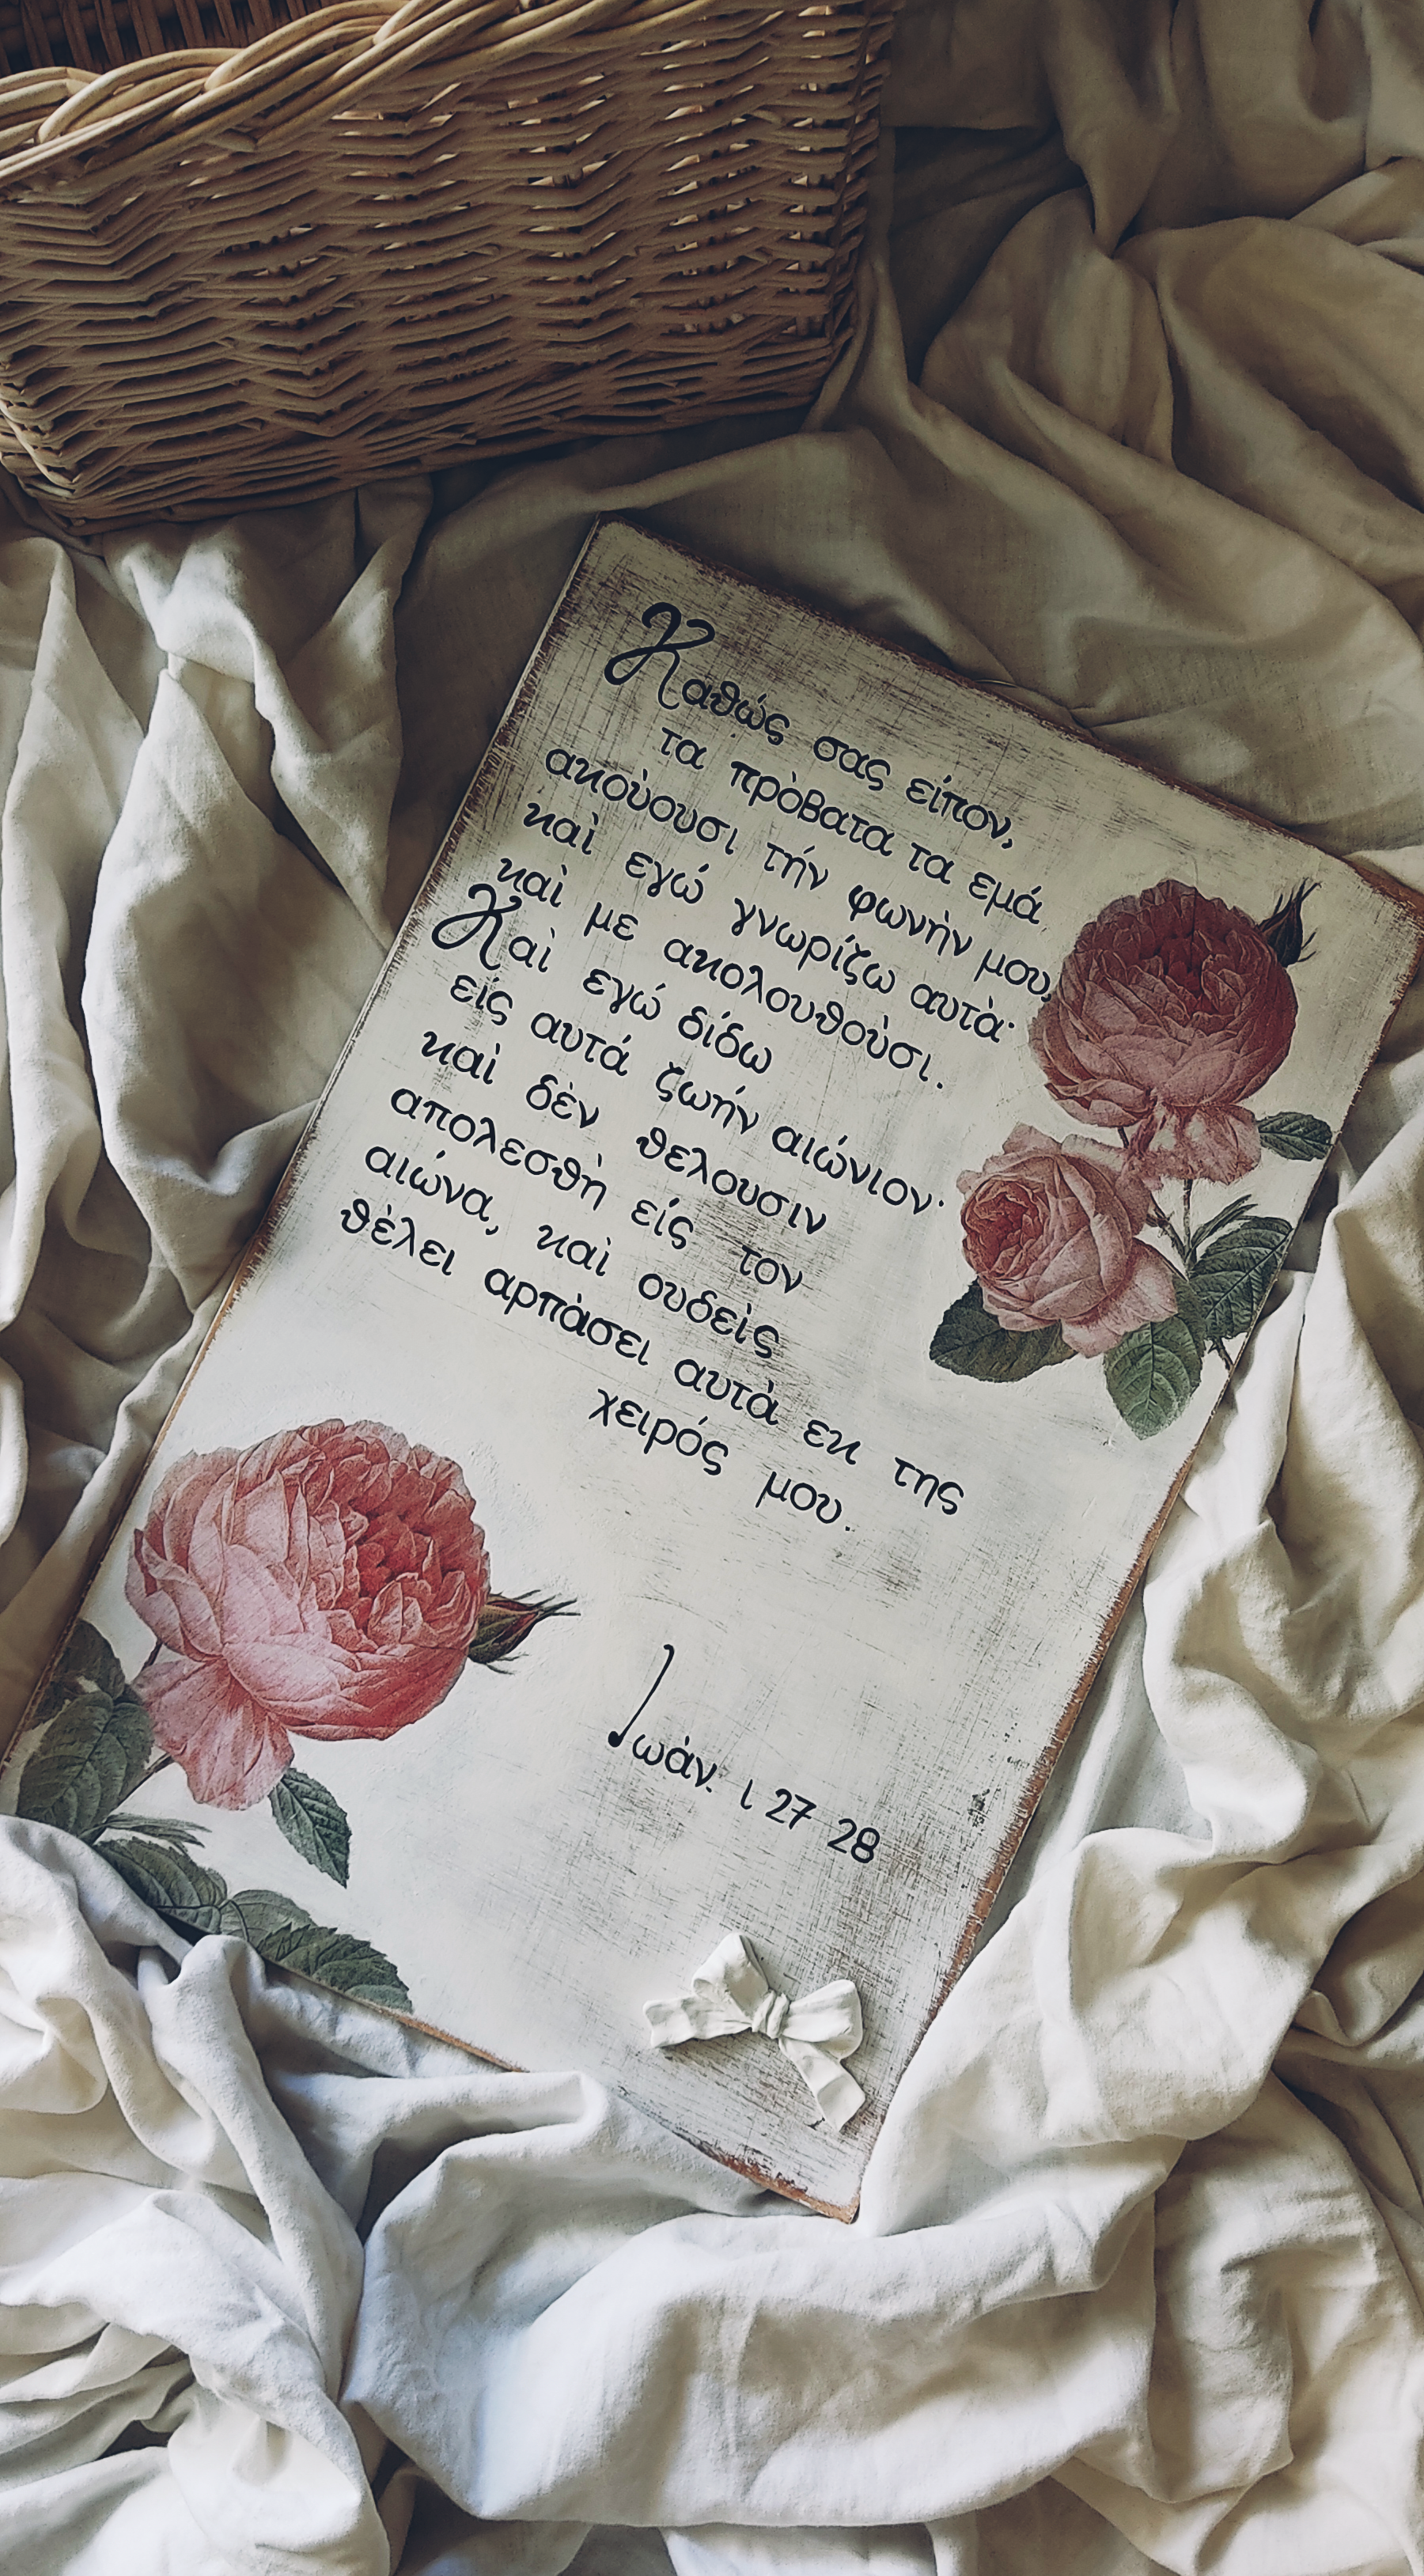 Καθώς σας είπον,
τα πρὸβατα τα εμά
ακοὺουσι τήν φωνὴν μου,
καὶ εγώ γνωρίζω αυτὰ·
καὶ με ακολουθοὺσι.
Καὶ εγώ δίδω
είς αυτά ζωήν αιώνιον·
καὶ δὲν θελουσιν
απολεσθὴ είς τον
αιώνα, καὶ ουδεὶς
θὲλει αρπὰσει αυτὰ εκ της
χειρός μου.
Ιωὰν. ι 27 28